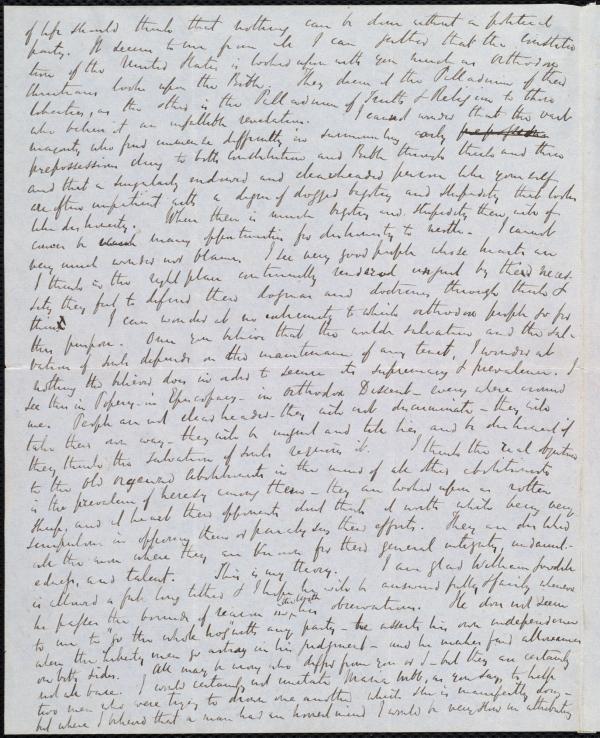 of life should think that nothing can be done without a political
party. It seems to me from all I can gather that the Constitu
tion of the United States is looked upon with you much as Orthodox
Christians look upon the Bible. They deem it the Palladium of their
liberties, as the other is the Palladium of Truth & Religion to those
who believe it an infallible revelation. I cannot wonder that the vast
majority, who find immense difficulty in surmounting early
prepossessions cling to both Constitution and Bible through thick and thin
and that a singularly endowed and clearheaded person like yourself
are often impatient with a degree of dogged bigotry and stupidity that looks
like dishonesty. Where there is much bigotry and stupidity there will of
course be many opportunities for dishonesty to nestle. I cannot
very much wonder not blame. I see very good people whose hearts are
I think in the right place continually rendered unjust by the neces
sity they feel to defend their dogmas and doctrines through thick &
thin. I can wonder at no extremity to which orthodox people go for
this purpose. Once you believe that the world's salvation and the sal
vation of souls depends on the maintenance of any tenet, I wonder at
nothing the believer does in order to secure its supremacy & prevalence. I
see this in Popery - in Episcopacy - in Orthodox Dissent - every where around
me. People are not clear headed - they will not discriminate - they will
take their own way - they will be unjust and tell lies, and be dishonest if
they think the salvation of souls requires it. I think the real objection
to the Old organized Abolitionists in the mind of all other abolitionists
is the prevalence of heresy among them - they are looked upon as rotten
sheep, and at heart their opponents don't think it worth while being very
scrupulous in opposing them or fairly using their efforts. They are disliked
all the more where they are known for their general integrity, undaunt-
edness, and talent. This is my theory. I am glad William
is allowed a full long tether & I hope he will be answered fully & fairly wherever
he passes the bounds of reason with his observations. He does not seem
to me to "go the whole hog" with any party - he asserts his own independence
when the Liberty men go astray in his judgment - and he makes fair allowances
on both sides. All may be wrong who differ from you or I - but they are certainly
not all base. I would certainly not imitate Maria who, as you say, to help
two men who were trying to drown one another which she is manifestly doing -
but where I believed that a man had an honest mind I would be very slow in attributing